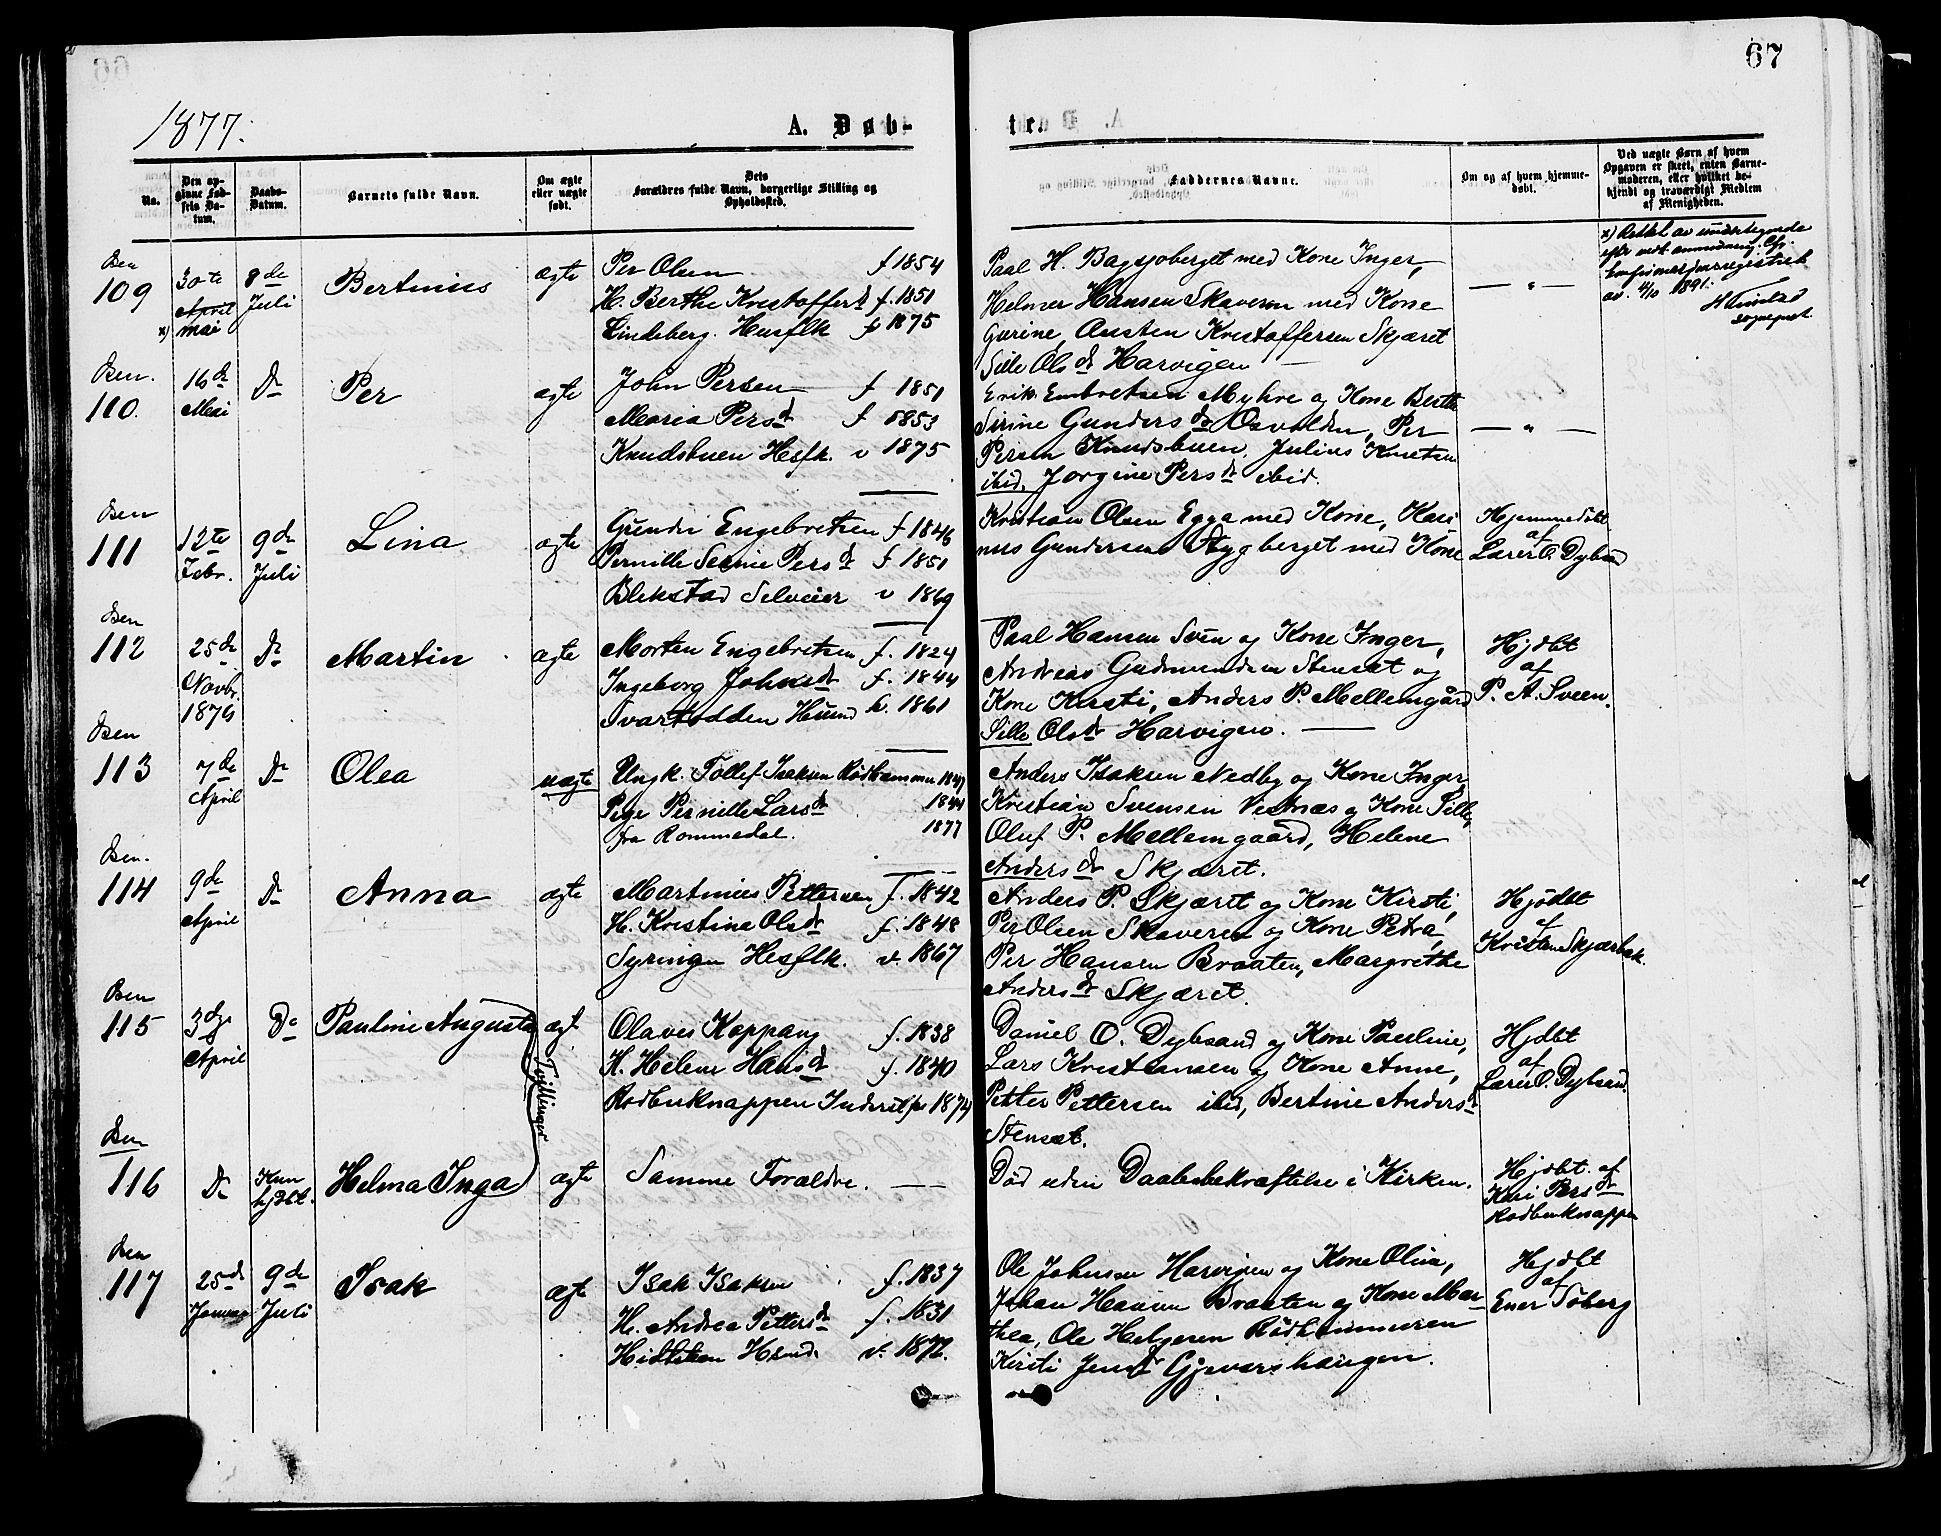 67
1877.
A. Døb-
te.
No.
Den opginne Fødsels Datum.
Daabs-Datum.
Barnets fulde Navn.
Om ægte eller uægte født.
Dets Forældres fulde Navn, borgerlige Stilling og Opholdssted.
Faddernes Navne.
Om og af hvem hjemmedøbt.
Ved uægte Børn af hvem Opgaven er skeet, enten Barnemoderen, eller hvilket bekjendt og troværdigt Medlem af Menigheden.
Ben
109
30te
April
x) mai
8de
Juli
Bertinius
ægte
Per Olsen f 1854
H. Berthe Kristoffersd f. 1851
Lindeberg. Husflk v 1875
Paal H. Bagsjoberget med Kone Inger,
Helmer Hansen Skaveren med Kone
Gurine, Austen Kristoffersen Skjæret
Sille Olsdr Harvigen —
— " —
x) Rettet av undertegnede
efter mdt. anmodning. Cfr.
konfirmasjonsregistret
av 4/10 1891.
sognepr.
Ben.
110.
16de
Mai
Do
Per
ægte
John Persen f 1851
Maria Persdr f 1853
Knudsbuen Hesfk. v 1875
Erik Embretsen Myhre og Kone Berthe
Sirine Gundersdr Osvolden, Per
Persen Knudsbuen, Julius Knutsen
ibid, Jorgine Persdr ibid.
— " —
Ben
111
12te
Febr.
9de
Juli
Lina
ægte
Gunder Engebretsen f 1846
Pernille Serine Persdr f 1851
Blekstad Selveier v 1869
Kristian Olsen Egga med Kone, Hari-
nus Gundersen Stygberget med Kone
Hjemmedøbt
af
Lærer O. Dybsand
Ben
112
25de
Novbr.
1876
Do
Martin
ægte
Morten Engebretsen f. 1824
Ingeborg Johnsdr f. 1844
Svartodden Husmd v. 1861
Paal Hansen Sveen og Kone Inger,
Andreas Gudmundsen Stensæt og
Kone Kirsti, Anders P. Mellemgård
Sille Olsdr Harvigen. —
Hjdbt
af
P. A. Sveen.
Ben
113
7de
April
Do
Olea
uægte
Ungk. Tollef Isaksen Rødhammer 1847
Pige Pernille Larsdr 1844
fra Rommedal. 1877
Anders Isaksen Nedby og Kone Inger
Kristian Svensen Vestnæs og Kone Sille,
Oluf P. Mellemgaard, Helene
Andersdr Skjæret.
Ben.
114
9de
April
Do
Anna
ægte
Martinius Pettersen f. 1842
H. Kristina Olsdr f. 1848
Syringen Hesflk. v. 1867
Anders P. Skjæret og Kone Kirsti,
Per Olsen Skaveren og Kone Petra,
Per Hansen Braaten, Margrethe
Andersdr Skjæret.
Hjødbt
af
Kristen Skjærbæk.
Ben
115
3die
April
Do
Pauline Augusta
Tvillinger
ægt
Olaves Koppang f. 1838
H. Helene Hansdr f. 1840
Rødbuknappen Inderst v 1874
Daniel O. Dybsand og Kone Pauline,
Lars Kristiansen og Kone Anne,
Petter Pettersen ibid, Bertine Andersdr
Stensæt.
Hjdbt
af
Lærer O. Dybsand.
Ben
116
Do
Kun
hjdbt.
Helma Inga
ægte
Samme Forældre. —
Død uden Daabsbekræftelse i Kirken.
Hjdbt. af
Kari Persdr
Rødbuknappen
Ben
117
25de
Januar
9de
Juli
Isak
ægte
Isak Isaksen f. 1837
H. Andrea Pettersdr f. 1831
Hidliken Hsmd. v. 1872.
Ole Johnsen Harvigen og Kone Olina,
Johan Hansen Braaten og Kone Mar-
thea, Ole Helgesen Rødhammeren
Kirsti Jensdr Gjevarshaugen.
Hjdbt
af
Ener Toberg